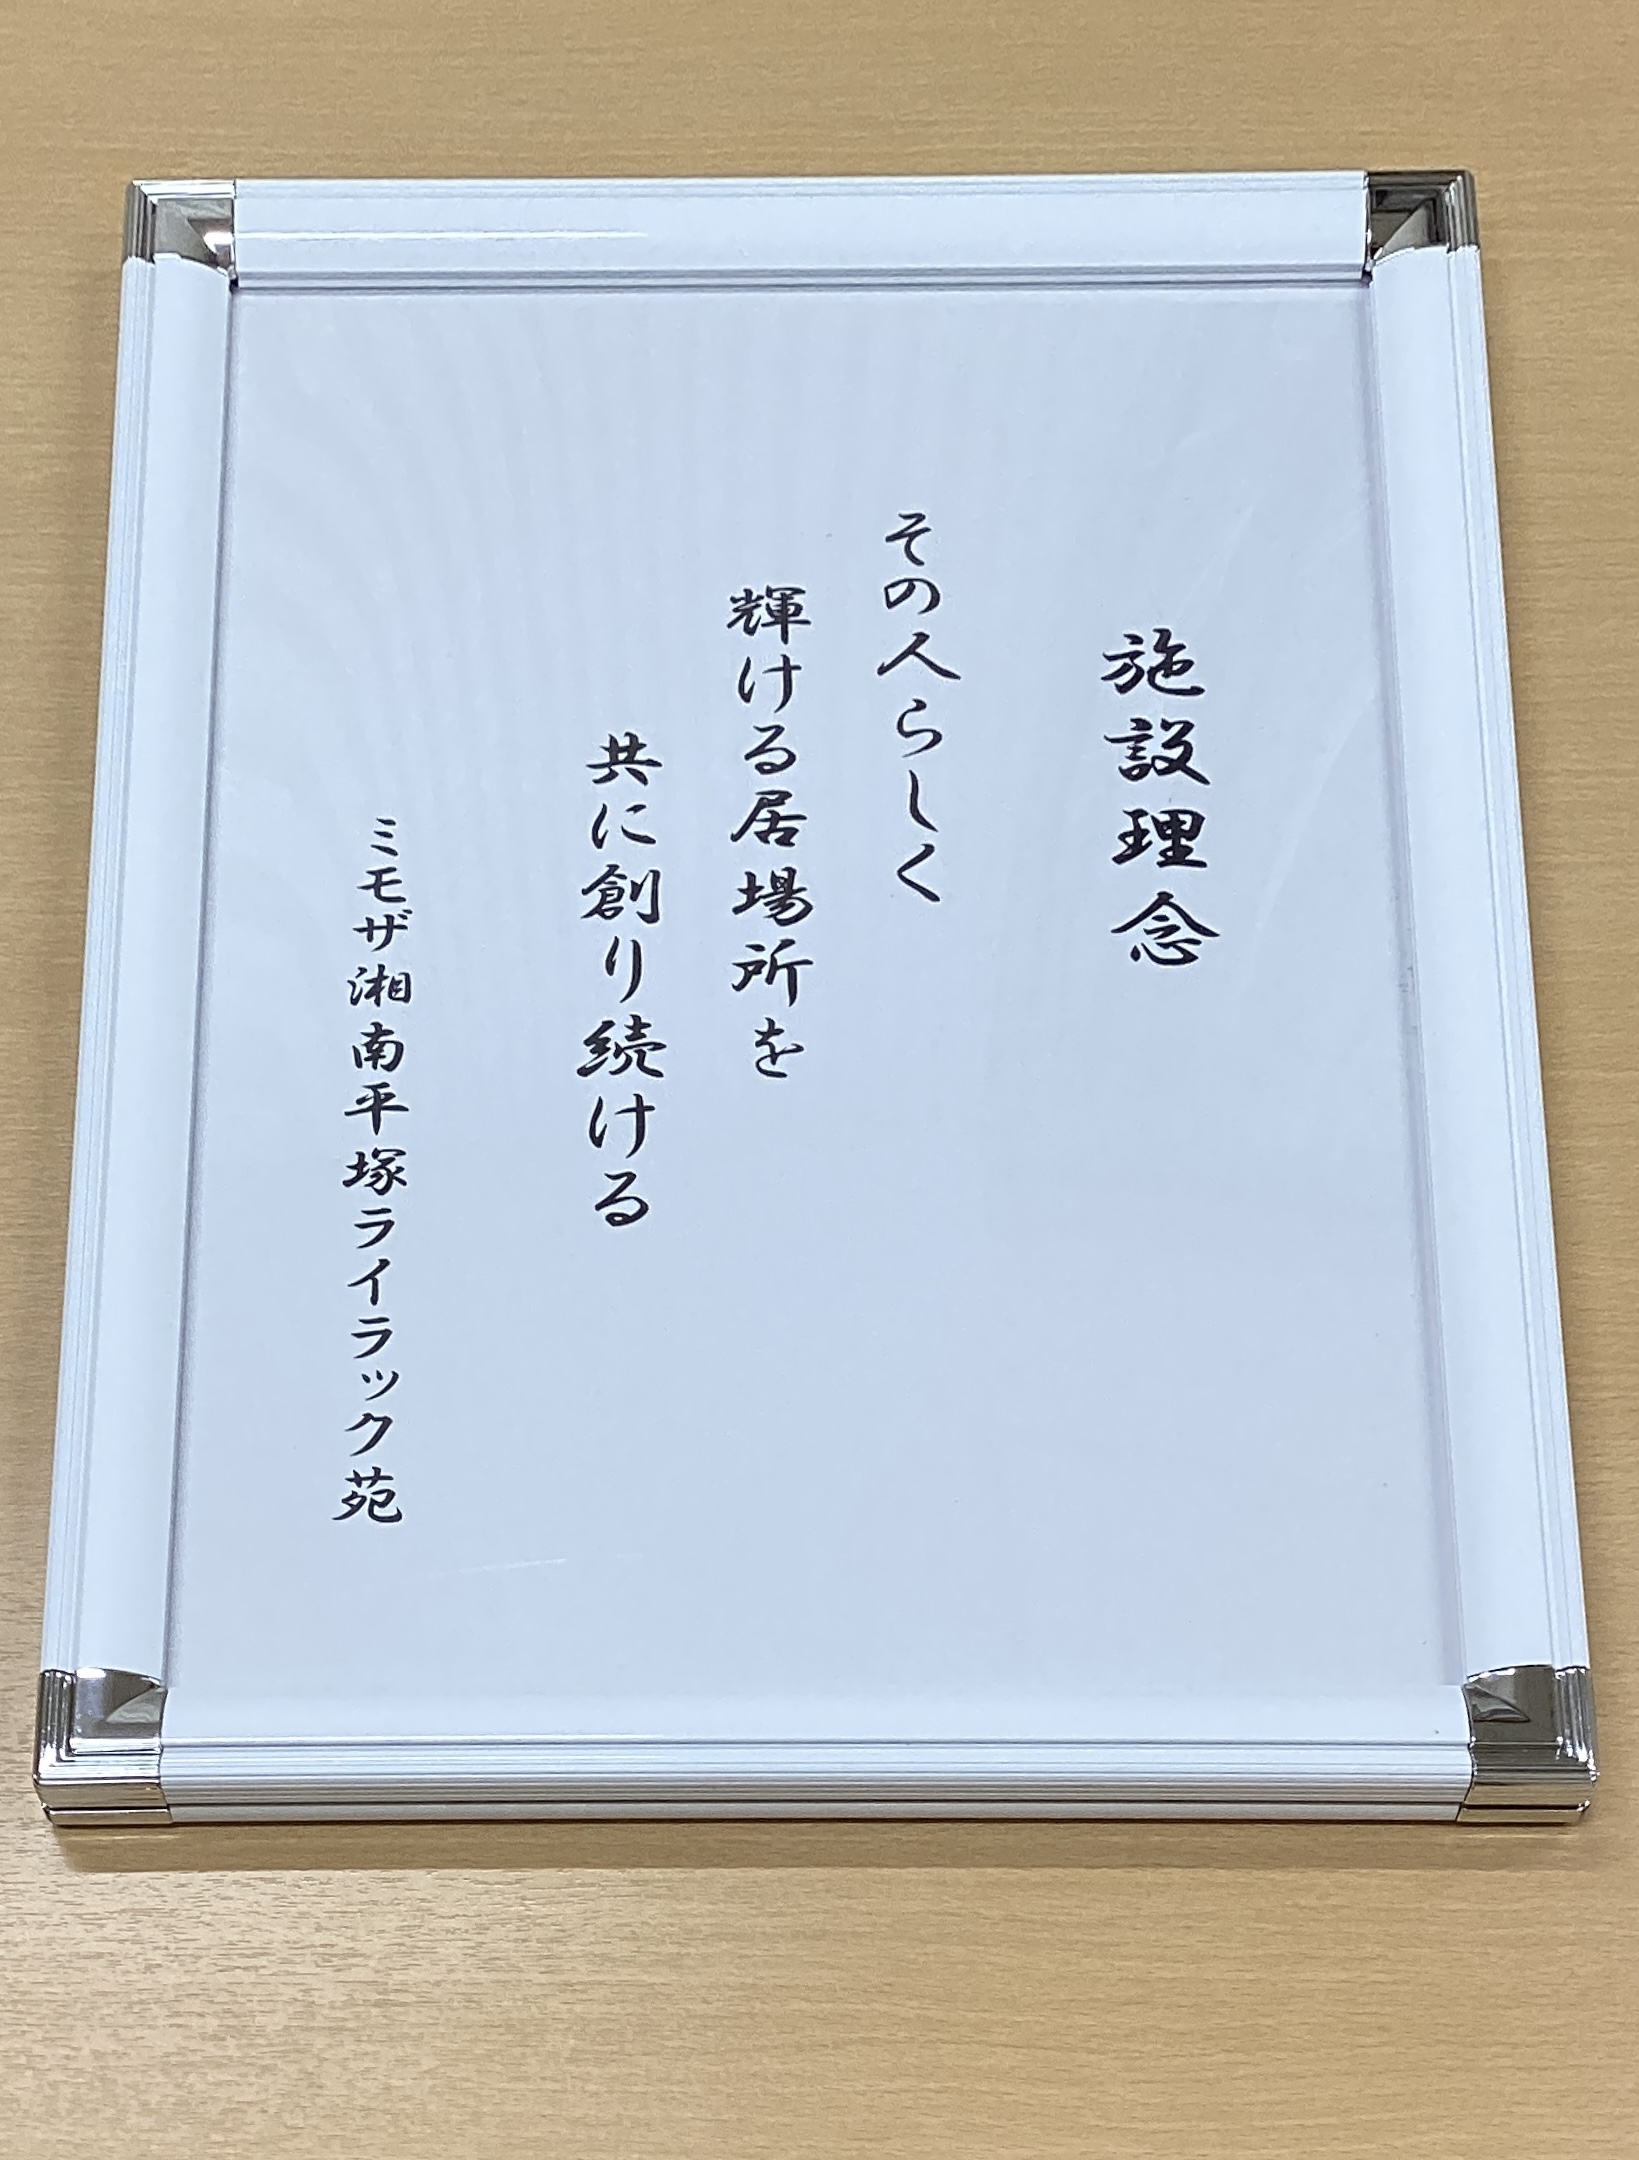 施設理念
その人らしく
輝ける居場所を
共に創り続ける
ミモザ湘南平塚ライラック苑